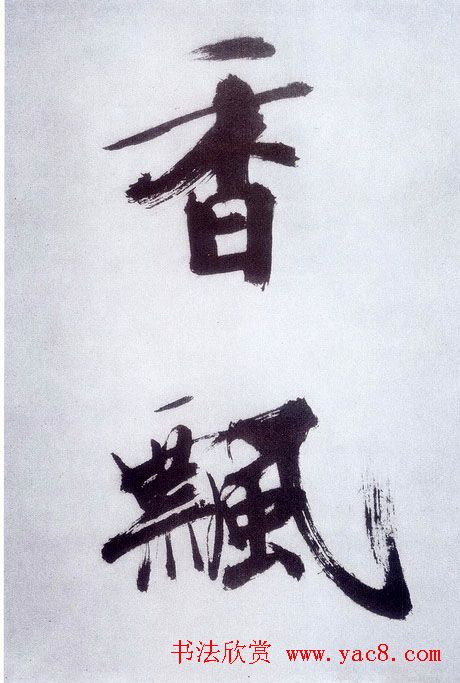 香
飄
书法欣赏 www.yac8.com